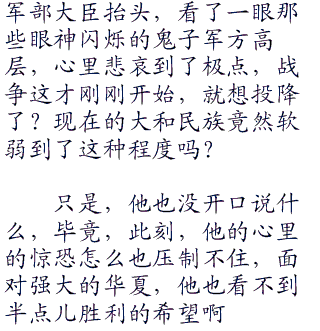 军部大臣抬头，看了一眼那
些眼神闪烁的鬼子军方高
层，心里悲哀到了极点，战
争这才刚刚开始，就想投降
了？现在的大和民族竟然软
弱到了这种程度吗？
只是，他也没开口说什
么，毕竟，此刻，他的心里
的惊恐怎么也压制不住，面
对强大的华夏，他也看不到
半点儿胜利的希望啊